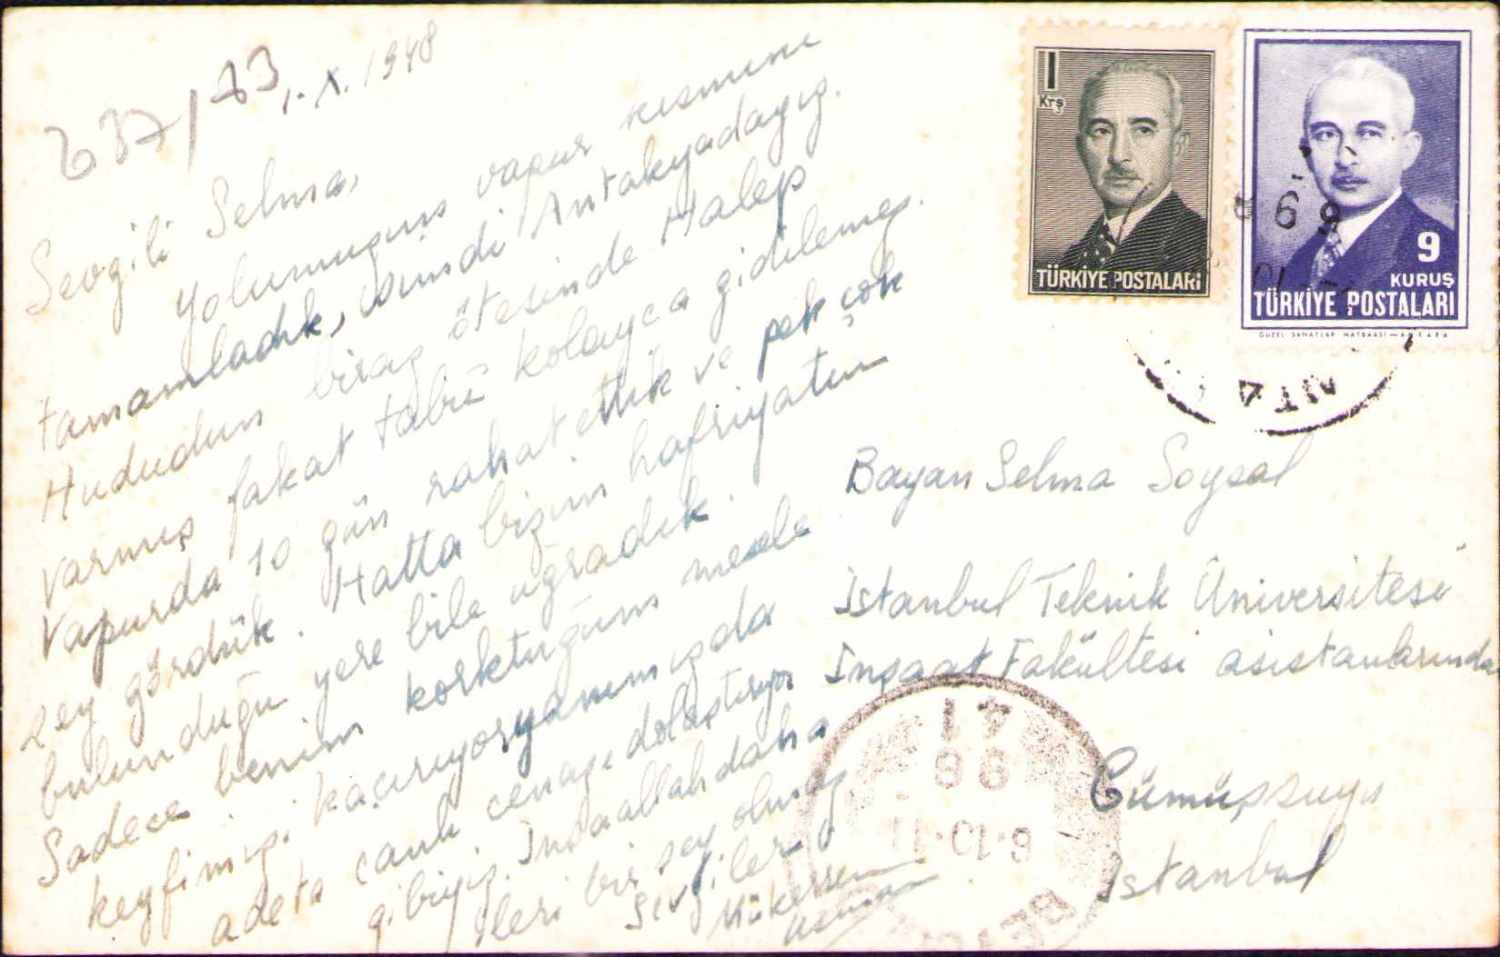 637/73
1.X.1948
Sevgili Selma,
Yolumuzun vapur kısmını
tamamladık, şimdi Antakyadayız.
Hududun biraz ötesinde Halep
varmış fakat tabii kolayca gidilemez.
Vapurda 10 gün rahat ettik ve pek çok
şey gördük. Hatta bizim hafriyatın
bulunduğu yere bile uğradık.
Sadece benim korktuğum mesele
keyfimizi kaçırıyor yanımızda
adeta canlı cenaze dolaştırıyor
gibiyiz. İnşaallah daha
ileri bir şey olmaz
Sevgiler
Mükerrem
1
Krş
TÜRKİYE POSTALARI
9
KURUŞ
TÜRKİYE POSTALARI
GÜZEL SANATLAR MATBAASI—ANKARA
Bayan Selma Soysal
İstanbul Teknik Üniversitesi
İnşaat Fakültesi asistanlarından
Gümüşsuyu
İstanbul